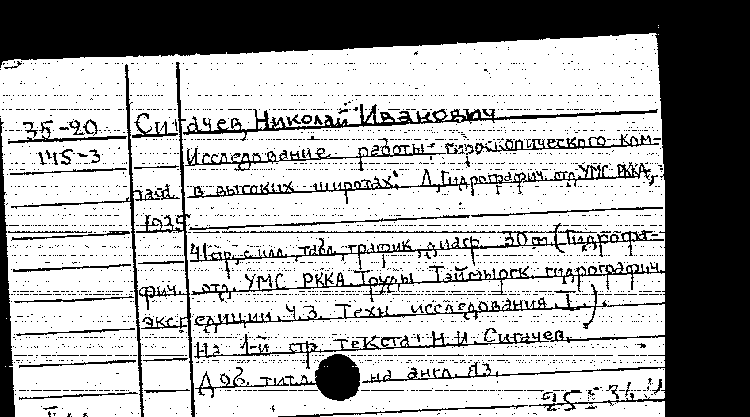 35-20 Сигачев, Николай Иванович
145-3 Исследование работы гироскопического ком-
паса в высоких широтах. Л., Гидрографич. отд. УМС РККА,
1935
41 стр., с илл., табл., график., диагр. 30 см (Гидрогра-
фич. отд. УМС РККА. Труды Таймырск. гидрографич.
экспедиции. Ч.3. Техн. исследования. I.).
На 1-й стр. текста: Н.И. Сигачев.
Доб. титл. на англ. яз.